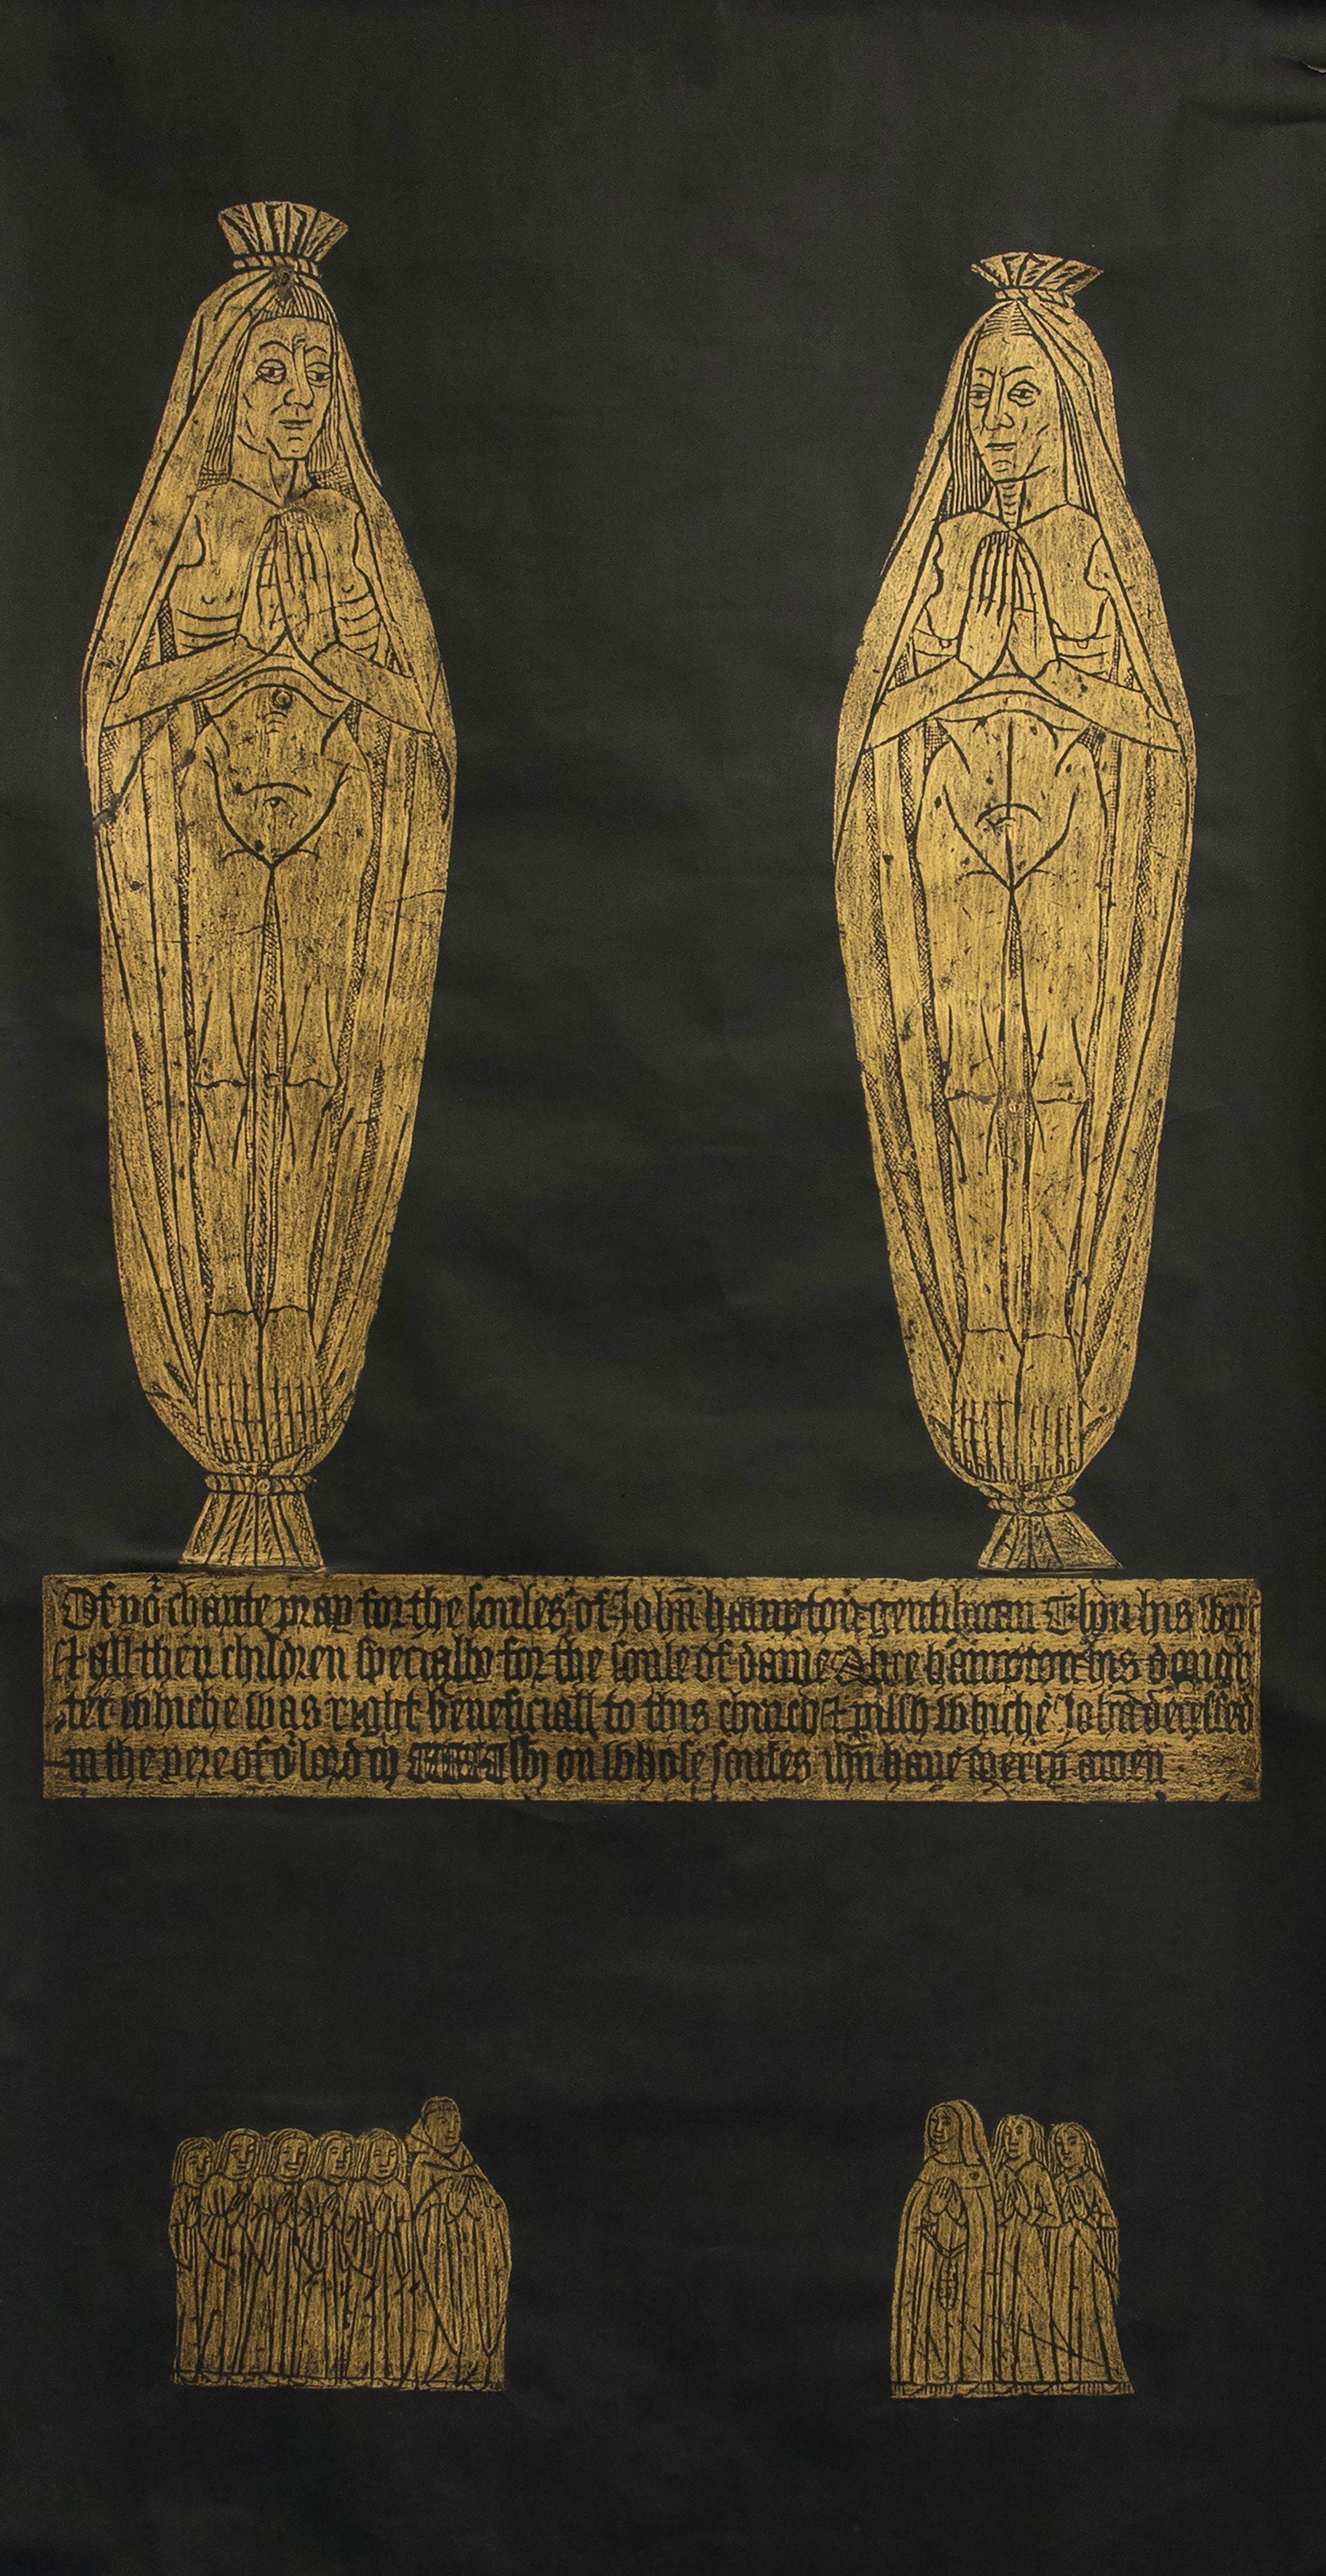 Of yor charite pray for the soules of John hampton gentilman Elyn his wyf
& all their children specially for the soule of dame Alice hampton his dough
ter whiche was right beneficiall to this church & pissh whiche John decessed
in the yere of or lord m lvj on whose soules ihu haue mercy amen